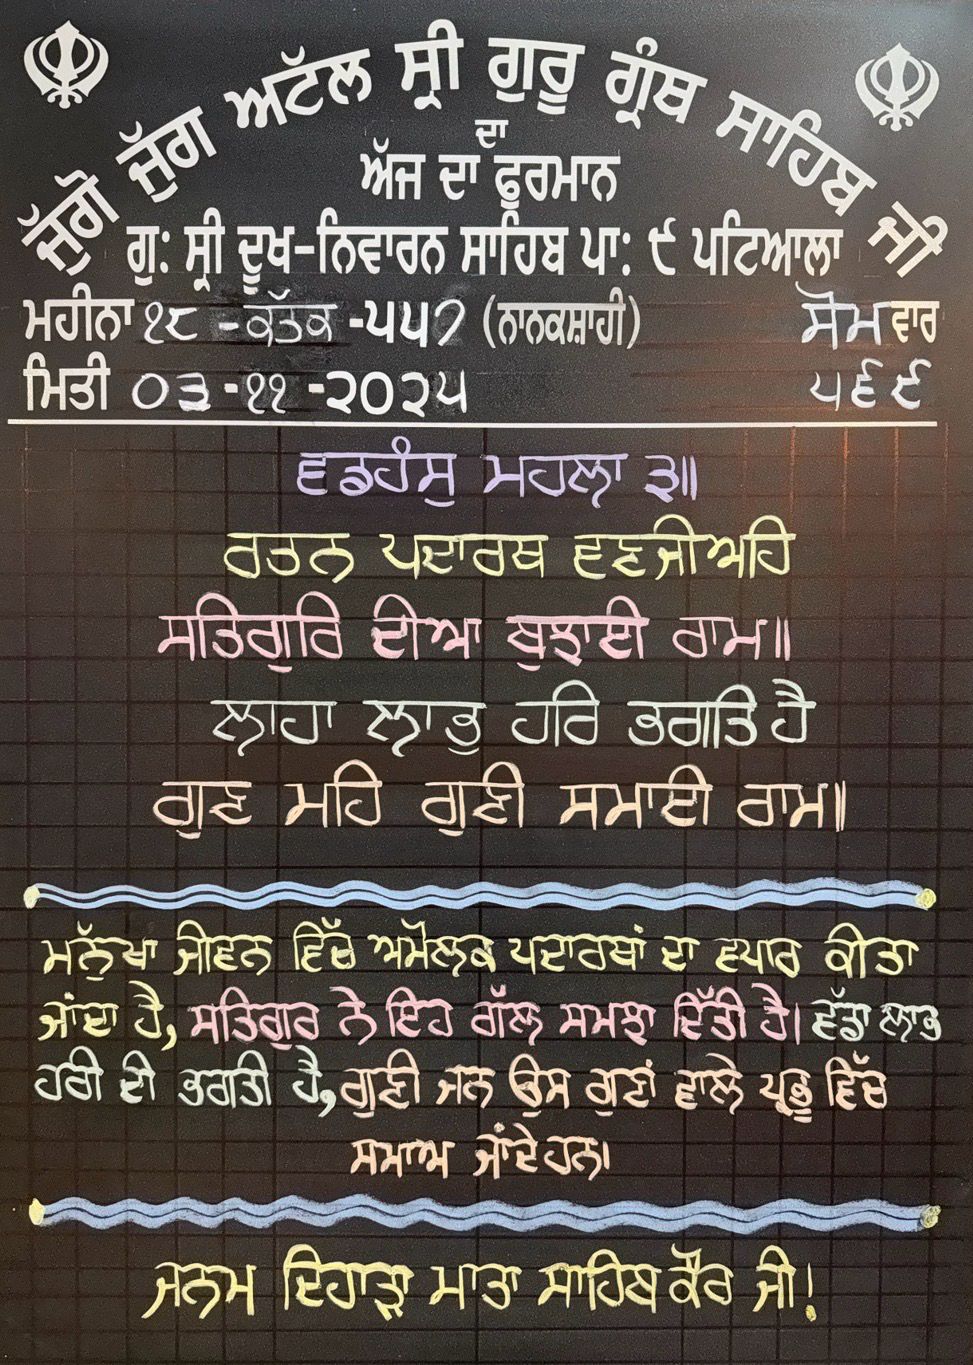 ਜੁੱਗੋ ਜੁੱਗ ਅਟੱਲ ਸ੍ਰੀ ਗੁਰੂ ਗ੍ਰੰਥ ਸਾਹਿਬ ਜੀ
ਦਾ
ਅੱਜ ਦਾ ਫੁਰਮਾਨ
ਗੁ: ਸ੍ਰੀ ਦੂਖ-ਨਿਵਾਰਨ ਸਾਹਿਬ ਪਾ: ੯ ਪਟਿਆਲਾ
ਮਹੀਨਾ ੧੮ -ਕੱਤਕ -੫੫੭ (ਨਾਨਕਸ਼ਾਹੀ) ਸੋਮਵਾਰ
ਮਿਤੀ ੦੩ -੧੧ -੨੦੨੫ ੫੬੯
ਵਡਹੰਸੁ ਮਹਲਾ ੩॥
ਰਤਨ ਪਦਾਰਥ ਵਣਜੀਅਹਿ
ਸਤਿਗੁਰਿ ਦੀਆ ਬੁਝਾਈ ਰਾਮ॥
ਲਾਹਾ ਲਾਭੁ ਹਰਿ ਭਗਤਿ ਹੈ
ਗੁਣ ਮਹਿ ਗੁਣੀ ਸਮਾਈ ਰਾਮ॥
ਮਨੁੱਖਾ ਜੀਵਨ ਵਿੱਚ ਅਮੋਲਕ ਪਦਾਰਥਾਂ ਦਾ ਵਪਾਰ ਕੀਤਾ
ਜਾਂਦਾ ਹੈ, ਸਤਿਗੁਰ ਨੇ ਇਹ ਗੱਲ ਸਮਝਾ ਦਿੱਤੀ ਹੈ। ਵੱਡਾ ਲਾਭ
ਹਰੀ ਦੀ ਭਗਤੀ ਹੈ, ਗੁਣੀ ਜਨ ਉਸ ਗੁਣਾਂ ਵਾਲੇ ਪ੍ਰਭੂ ਵਿੱਚ
ਸਮਾਅ ਜਾਂਦੇ ਹਨ।
ਜਨਮ ਦਿਹਾੜਾ ਮਾਤਾ ਸਾਹਿਬ ਕੌਰ ਜੀ!